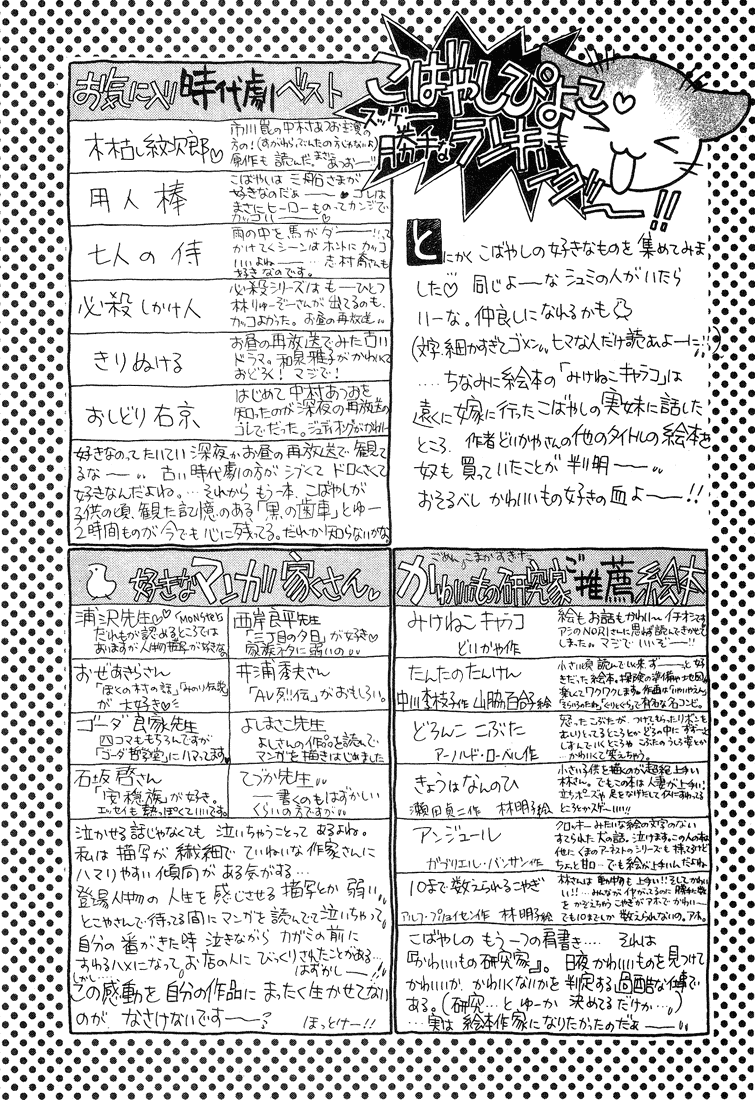 こばやしぴよこ♡
スッゲー
勝手な
ランキ
イング〜〜!!
とにかく こばやしの好きなものを 集めてみま
した♡ 同じよーな シュミの人がいたら
いーな。仲良しになれるかも
(文字、細かすぎてゴメン。ヒマな人だけ読もよーに!!)
‥‥ちなみに絵本の「みけねこキャラコ」は
遠くに嫁に行ったこばやしの実妹に話した
ところ、作者どいかやさんの他のタイトルの絵本を
奴も買っていたことが判明——。
おそるべし かわいいもの好きの血よ——!!
お気に入り時代劇ベスト
木枯し紋次郎♡
市川崑の中村あつお主演の
方の!(すがわらぶんたの方じゃないよ)
原作も読んだ。
用人棒
こばやしは三船さまが
好きなのだぁ——♡ コレは
まさにヒーローものってカンジで
カッコいー
七人の侍
雨の中を馬がダー——!!って
かけてくシーンはホントにカッコ
いいよねー‥‥志村喬さんも
好きなのです。
必殺しかけ人
必殺シリーズはもーひとつ
林りゅーぞーさんが出てるのも、
カッコよかった。お昼の再放送。
きりぬける
お昼の再放送でみた古い
ドラマ。和泉雅子がかわいくて
おどろく!マジで!
おしどり右京
はじめて中村あつおを
知ったのが深夜の再放送の
コレでだった。ジュディオングがかわいー
好きなのってたいてい深夜かお昼の再放送で観て
るな——。古い時代劇の方がシブくてドロくさくて
好きなんだよね。‥‥それからもう一本、こばやしが
子供の頃、観た記憶のある「黒の歯車」とゆー
2時間ものが今でも心に残ってる。だれか知らないかな
好きなマンガ家くさん。
浦沢先生♡♡「MONSTER」
だれもが認めるところでは
ありますが人物描写が好きな。
西岸良平先生
「三丁目の夕日」が好き♡
家族ネタに弱いの。
おぜあきらさん
「ぼくの村の話」「みのり伝説」
が大好き♡
井浦秀夫さん
「AV烈伝」がおもしろい。
ゴーダ良家先生
四コマももちろんですが
「ゴーダ哲学堂」にハマってます♡
よしまさこ先生
よしさんの作品を読んで
マンガを描きはじめました
石坂啓さん
「安穏族」が好き。
エッセイも熱っぽくていいです。
てづか先生。
——書くのもはずかしい
くらいの方ですが。
泣かせる話じゃなくても 泣いちゃうことってあるよね。
私は描写が繊細でていねいな作家さんに
ハマリやすい傾向がある気がする…
登場人物の人生を感じさせる描写とか弱い。
とこやさんで待ってる間にマンガを読んでて泣いちゃって
自分の番がきた時泣きながらカガミの前に
すわるハメになってお店の人にびっくりされたことがある…
しかし… はずかし——!!
この感動を自分の作品にまったく生かせてない
のがなさけないです——? ほっとけー!!
ごめんこまかすぎた
かわいいもの研究家ご推薦絵本
みけねこキャラコ
どいかや作
絵もお話もかわい〜 イチオシです
アシのNORIさんに思わず読んできかせて
しまった。マジでいいぞ——!!
たんたのたんけん
中川李枝子作 山脇百合子絵
どろんこ こぶた
アーノルド・ローベル作
きょうはなんのひ
瀬田貞二作 林明子絵
小さい子供を描くのが超絶上手い
林さん。でもこの本は人妻が上手い!
アンジュール
ガブリエル・バンサン作
クロッキーみたいな絵の文字のない
すてられた犬の話。泣けます。この人の本
10まで数えられるこやぎ
アルフ・プリョイセン作 林明子絵
こばやしのもう一つの肩書き‥‥ それは
『かわいいもの研究家』。日夜かわいいものを見つけて
かわいいか、かわいくないかを判定する過酷な仕事で
ある。(研究…とゆーか 決めてるだけか…。)
‥‥実は絵本作家になりたかったのだぁ——。